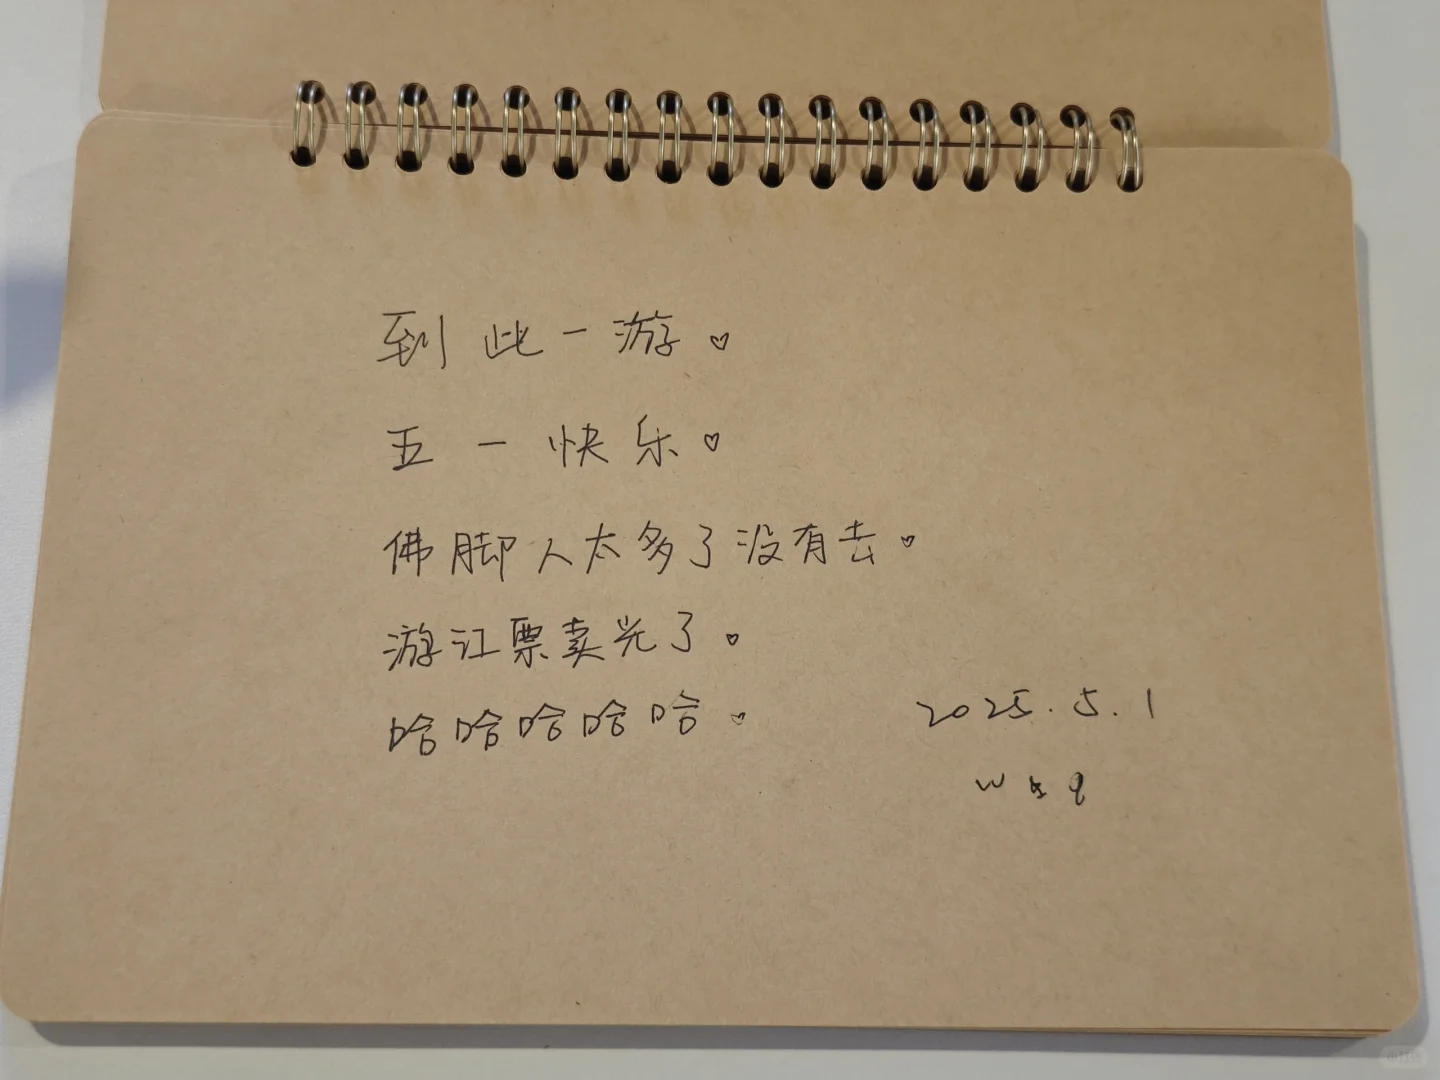 到此一游♡
五一快乐♡
佛脚人太多了没有去♡
游江票卖光了♡
哈哈哈哈哈♡
2025.5.1